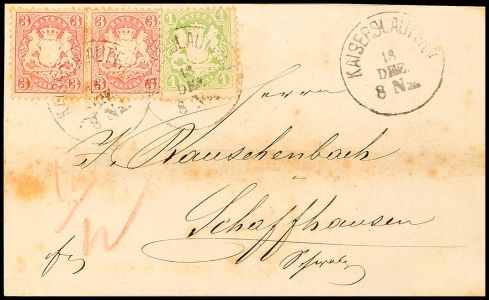 3 3 3 3 1 1
3 3 3 3 1 1
KAISERSLAUTERN
18
DEZ.
8 N.
18
DEZ.
8 N.
Herrn
J. Rauschenbach
Schaffhausen
Schweiz